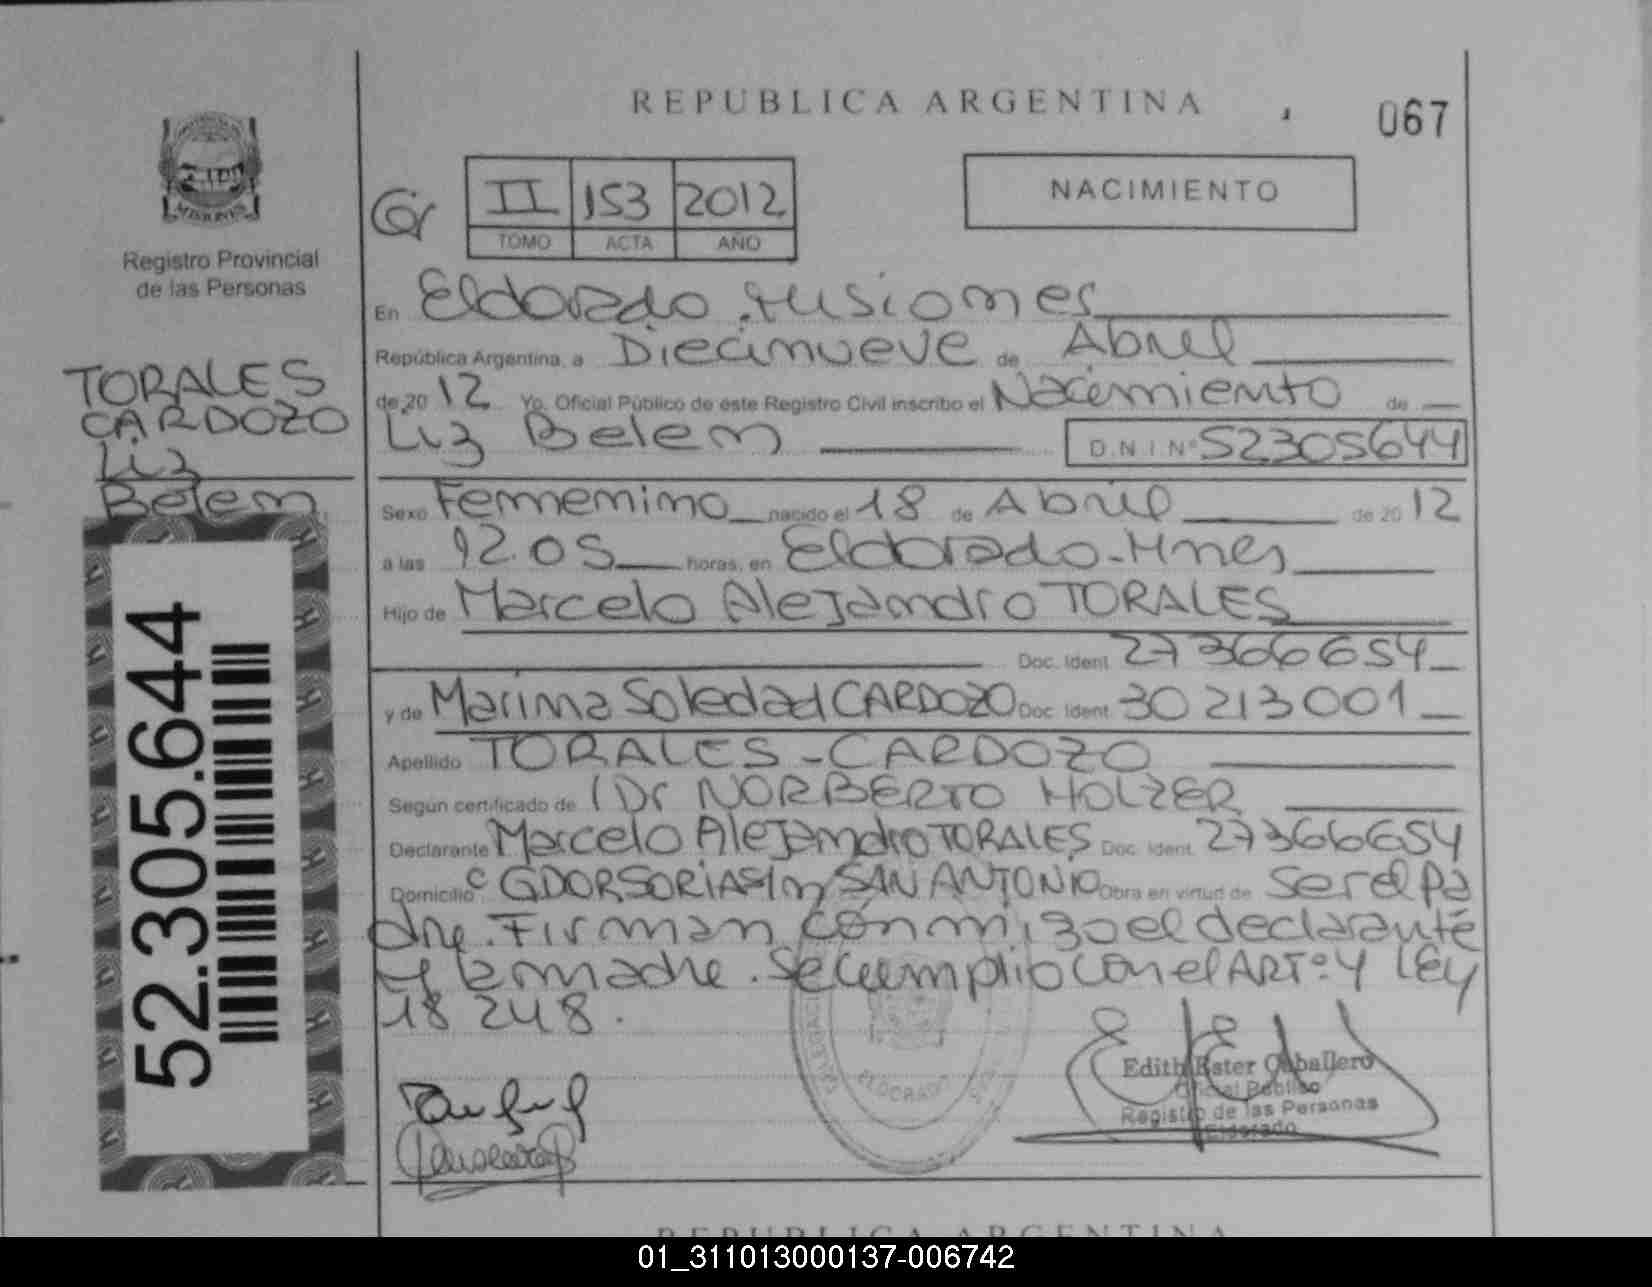 REPUBLICA ARGENTINA
067
II 153 2012
TOMO ACTA AÑO
NACIMIENTO
MISIONES
Registro Provincial
de las Personas
TORALES
CARDOZO
Liz
Belem
52.305.644
En Eldorado Misiones
República Argentina, a Diecinueve de Abril
de 20 12 Yo, Oficial Público de este Registro Civil inscribo el Nacimiento de
Liz Belem D.N.I.Nº 52305644
Sexo Femenino nacido el 18 de Abril de 20 12
a las 12.05 horas, en Eldorado-Mnes
Hijo de Marcelo Alejandro TORALES
Doc. Ident. 27366654
y de Marina Soledad CARDOZO Doc. Ident. 30213001
Apellido TORALES-CARDOZO
Según certificado de Dr NORBERTO HOLZER
Declarante Marcelo Alejandro TORALES Doc. Ident. 27366654
Domicilio SAN ANTONIO Obra en virtud de Ser el Pa
dre. Firman conmigo el declarante
y la madre. Se cumplio con el ART:4 LEy
18248.
ELDORADO
Edith Ester Caballero
Oficial Público
Registro de las Personas
Eldorado
REPUBLICA ARGENTINA
01_311013000137-006742